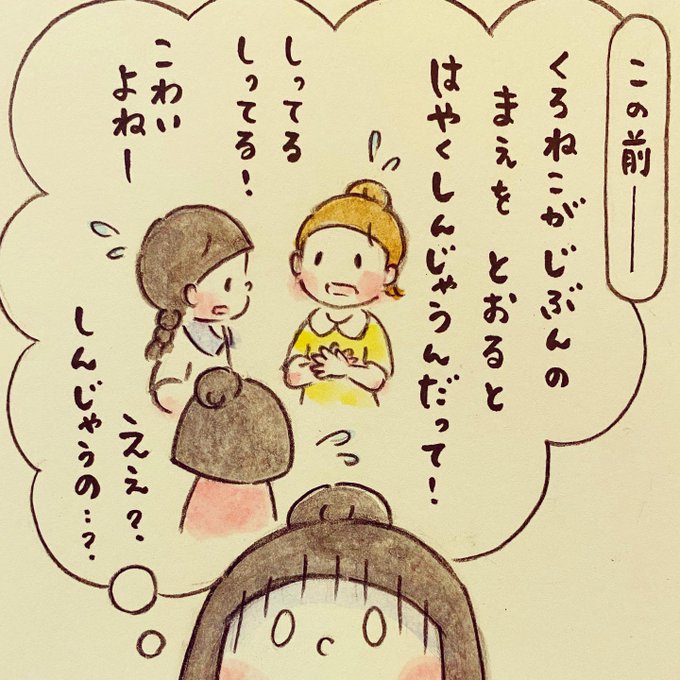 この前――
くろねこがじぶんの
まえを とおると
はやくしんじゃうんだって!
しってる
しってる!
こわい
よねー
ええ?
しんじゃうの…?